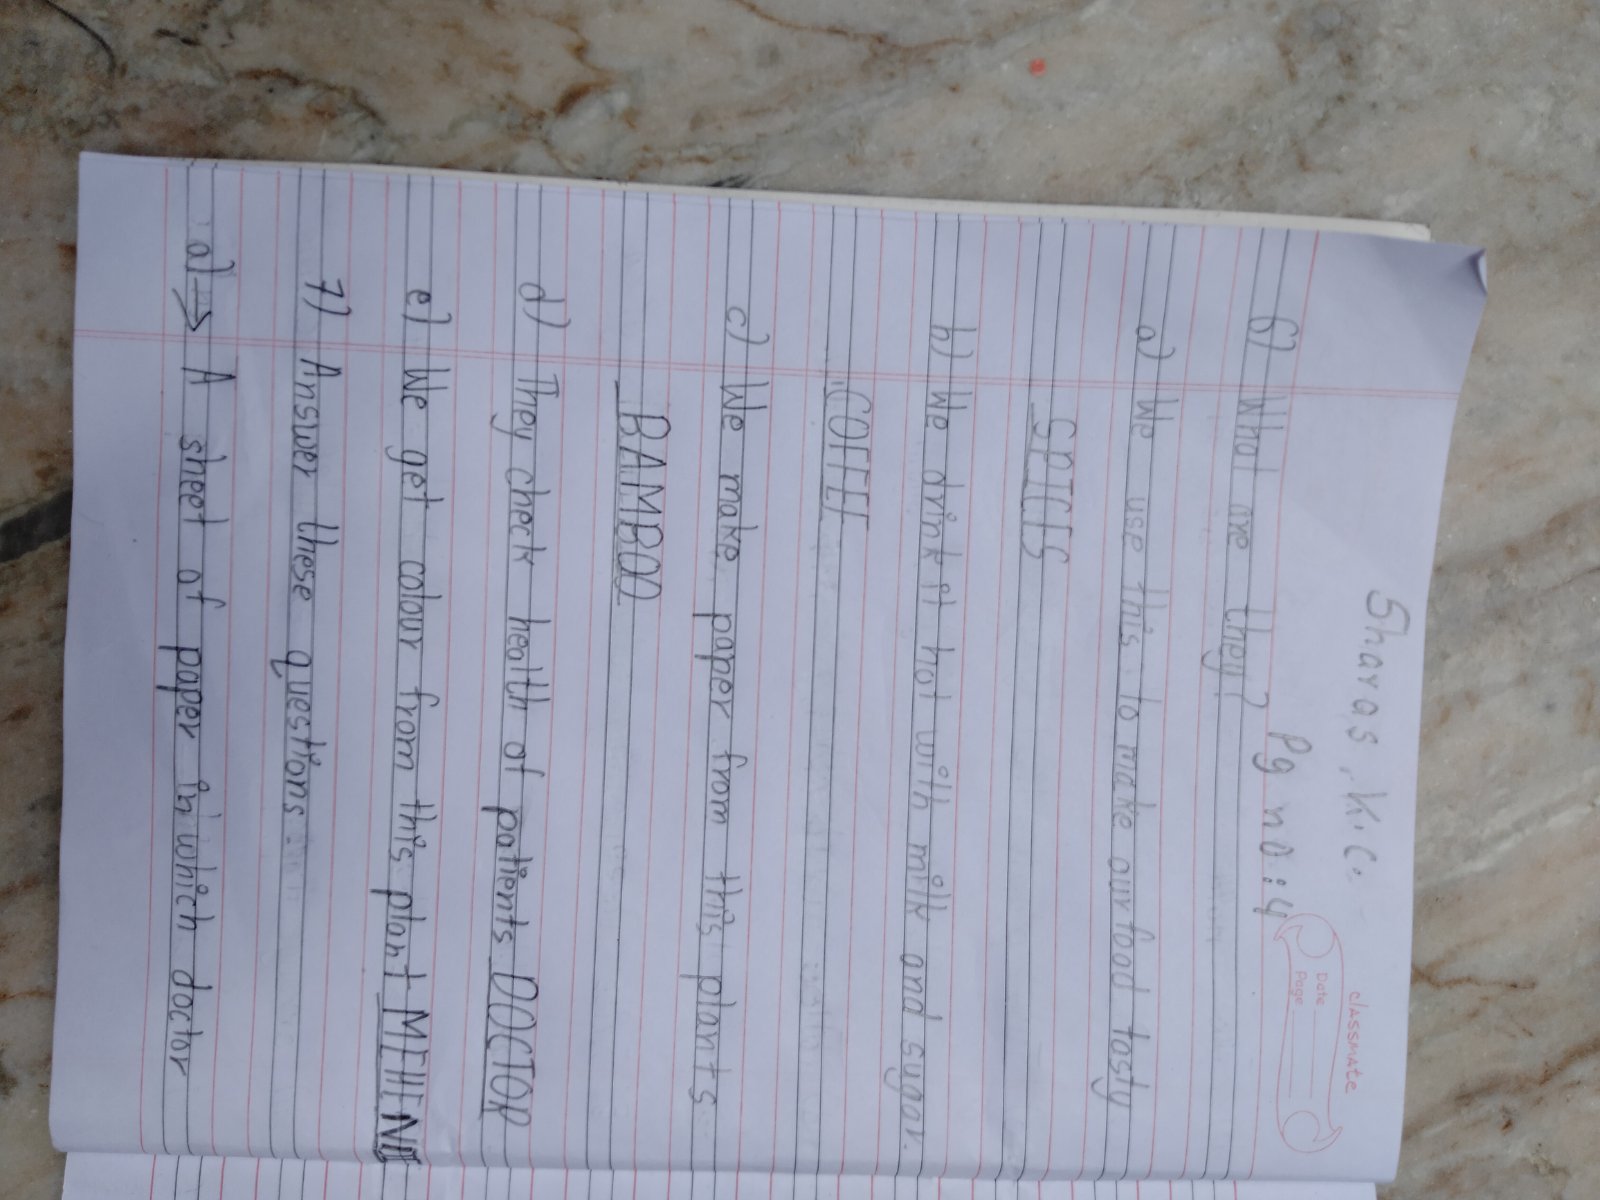 Sharas, K.C.
classmate
Date
Page
Pg no:4
6) What are they?
a) We use this to make our food tasty
SPICES
b) We drink it hot with milk and sugar.
COFFEE
c) We make paper from this plants
BAMBOO
d) They check health of patients DOCTOR
e) We get colour from this plant
7) Answer these questions
a)→ A sheet of paper in which doctor